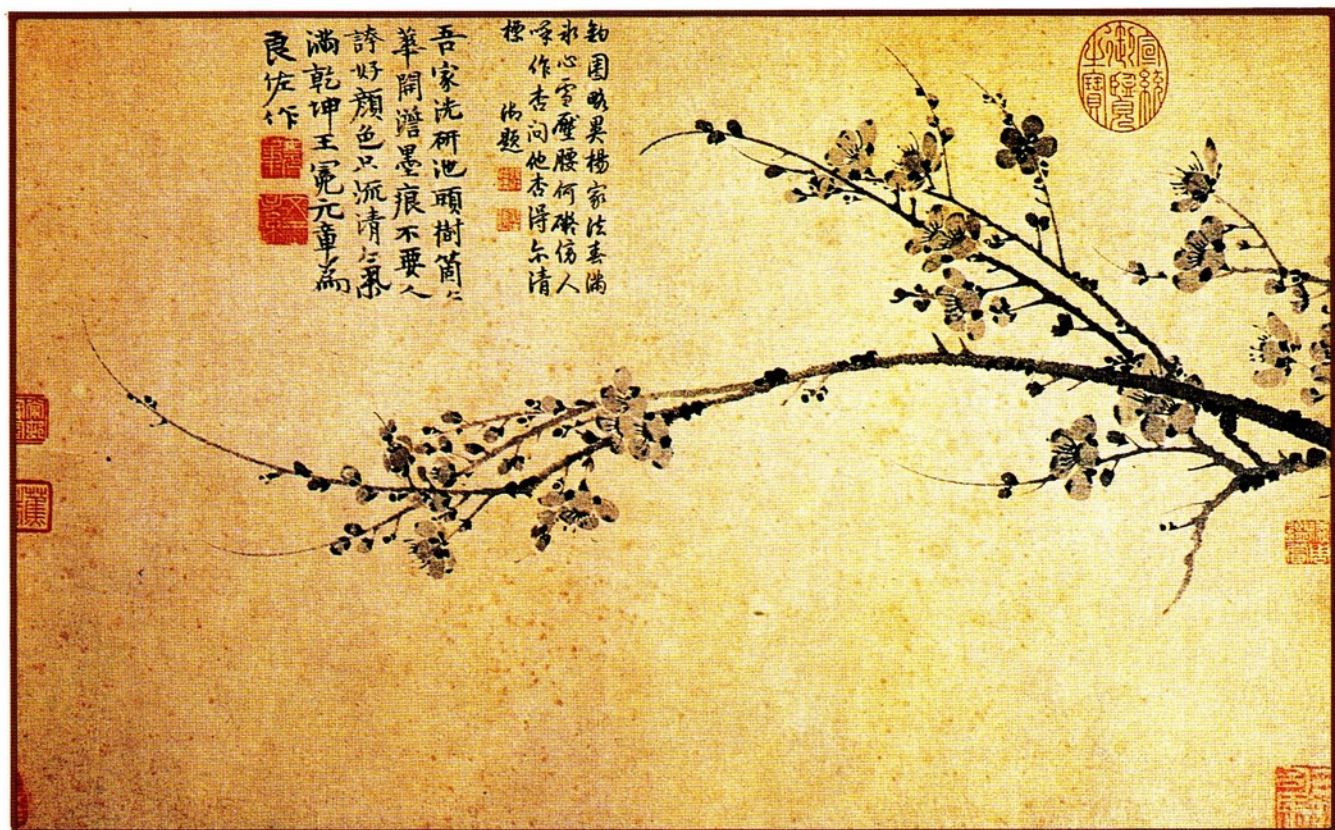 宣統
御覽
之寶
鈎圈略異楊家法春滿
氷心雪壓腰何礙傍人
呼作杏问他杏得尓清
標
御題
吾家洗研池頭樹箇〻
華開澹墨痕不要人
誇好顏色只流清氣
滿乾坤王冕元章為
良佐作
蕉